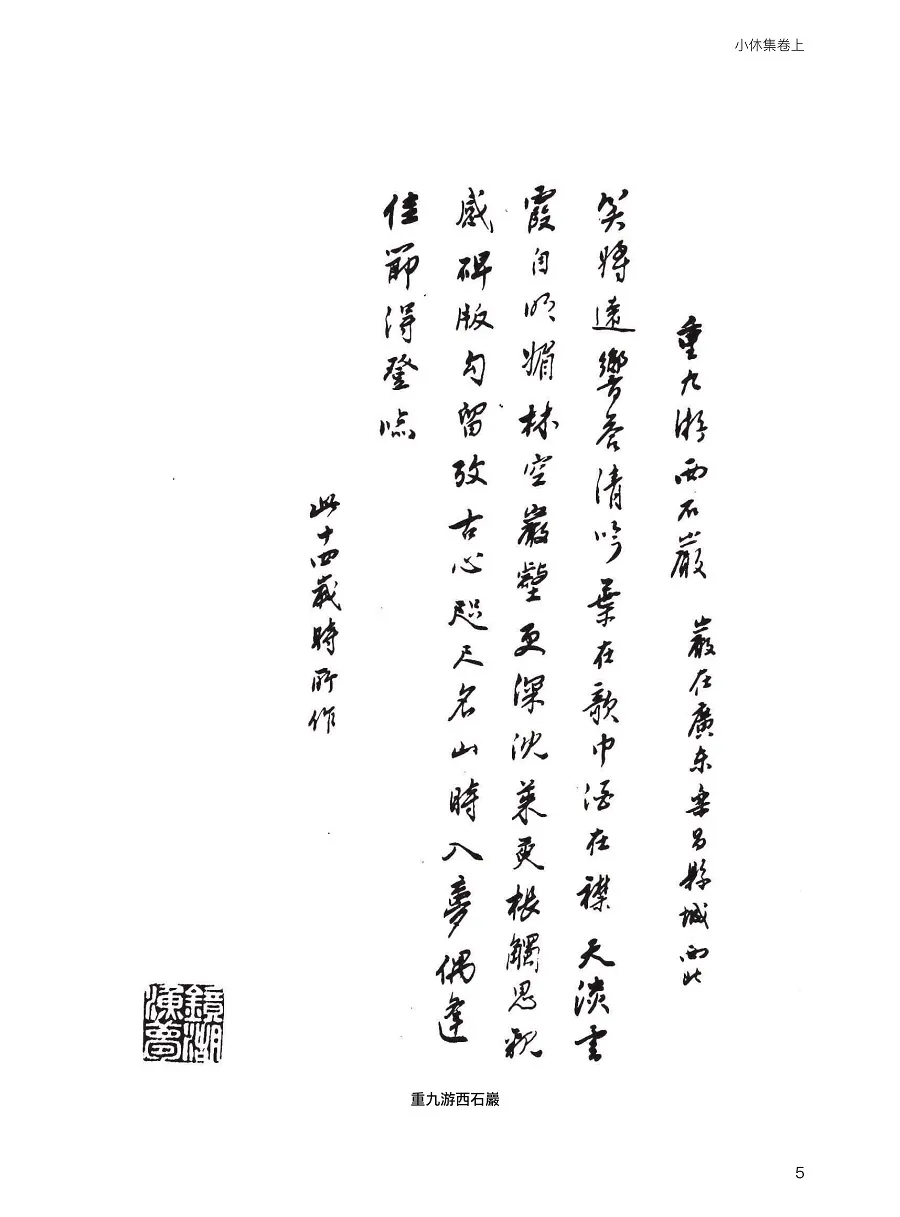 小休集卷上
重九游西石巖 巖在廣東樂昌縣城西北
笑將遠響答清吟葉在欹巾酒在襟天淡雲
霞自明媚林空巖壑更深沈茱萸棖觸思親
感碑版勾留攷古心咫尺名山時入夢偶逢
佳節得登臨
此十四歲時所作
鏡湖
漁夢
重九游西石巖
5